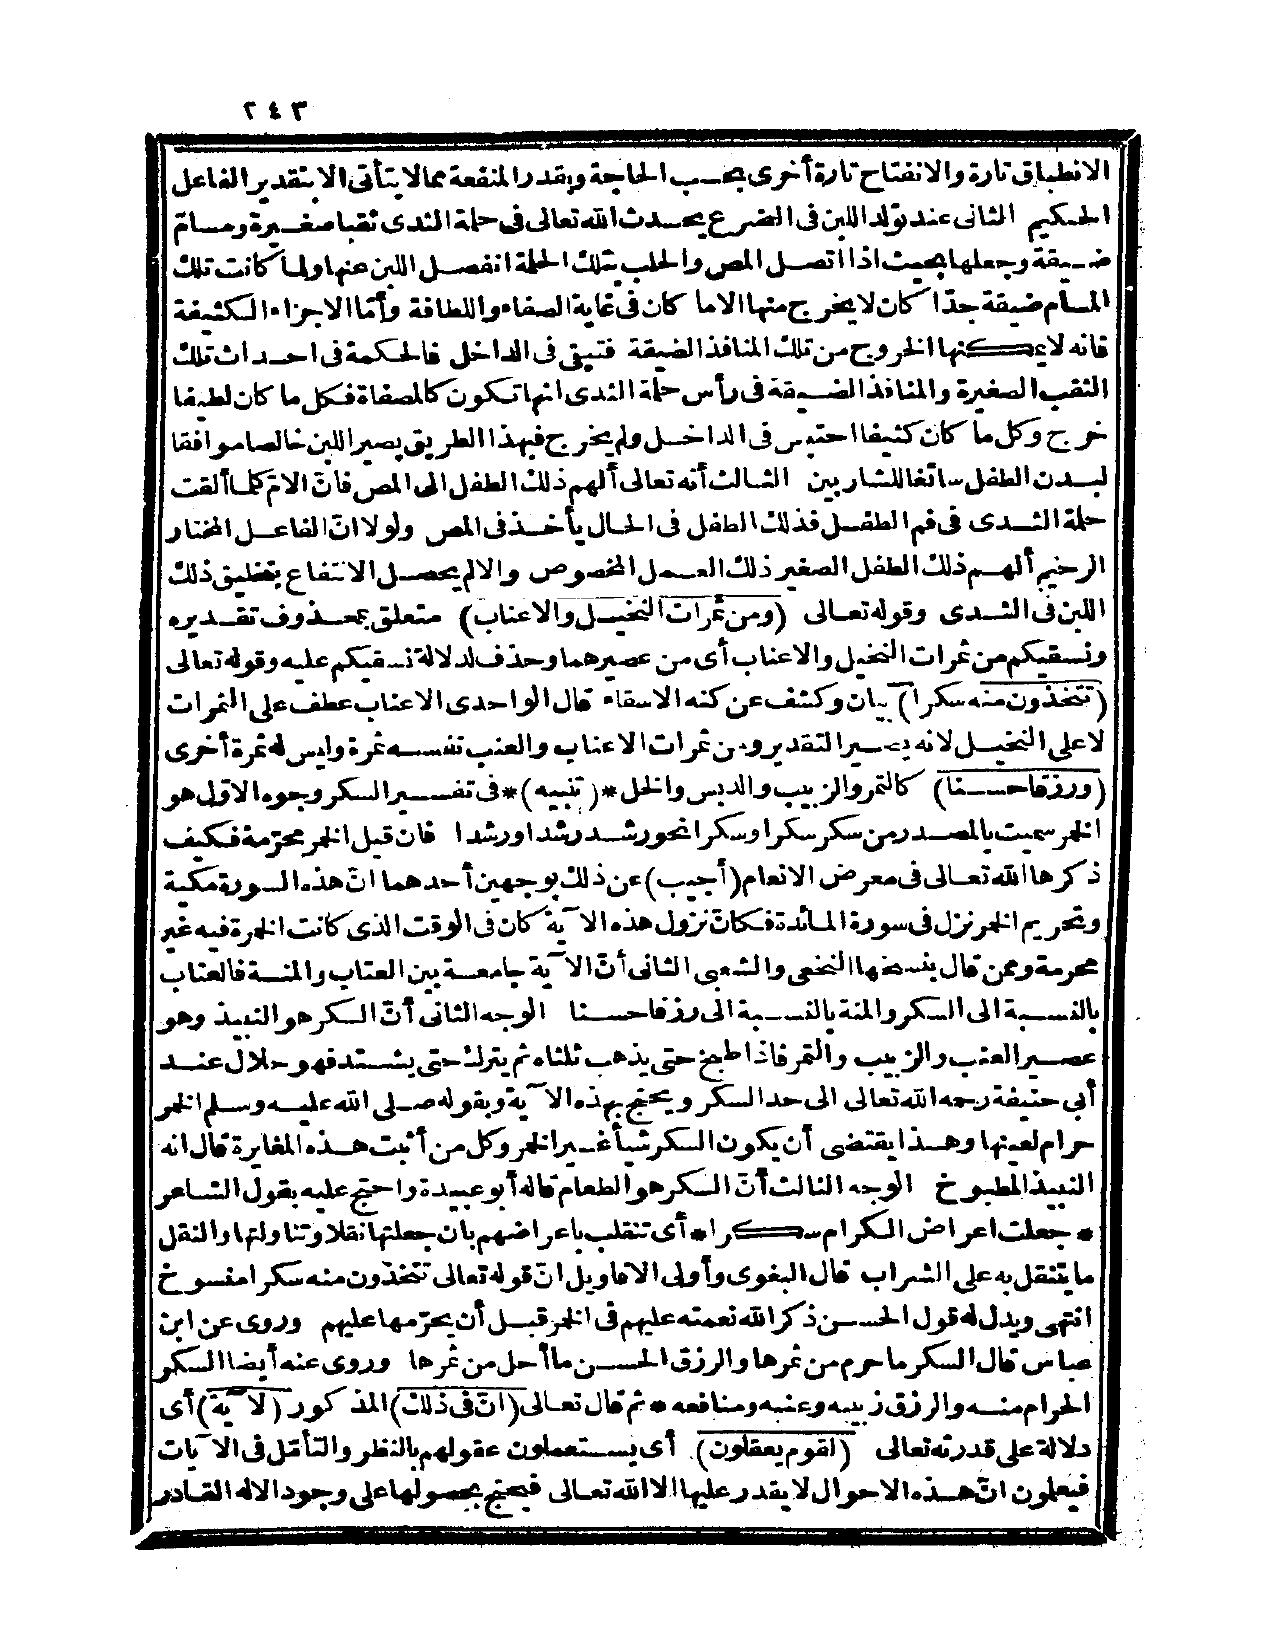 ٢٤٣
الانطباق تارة والانفتاح تارة أخرى بحسب الحاجة وبقدر المنفعة مما لا يتأتى الا بتقدير الفاعل
الحكيم الثانى عند تولد اللبن فى الضرع يحدث الله تعالى فى حلمة الثدى ثقبا صغيرة ومسام
ضيقة وجعلها بحيث اذا اتصل المص والحلب بتلك الحلمة انفصل اللبن عنها ولما كانت تلك
المسام ضيقة جدا كان لا يخرج منها الا ما كان فى غاية الصفاء واللطافة وأمّا الاجزاء الكثيفة
فانه لا يمكنها الخروج من تلك المنافذ الضيقة فتبقى فى الداخل فالحكمة فى احداث تلك
الثقب الصغيرة والمنافذ الضيقة فى رأس حلمة الثدى انها تكون كالمصفاة فكل ما كان لطيفا
خرج وكل ما كان كثيفا احتبس فى الداخل ولم يخرج فبهذا الطريق يصير اللبن خالصا موافقا
لبدن الطفل سائغا للشاربين الثالث أنه تعالى ألهم ذلك الطفل الى المص فانّ الامّ كلما ألقت
حلمة الثدى فى فم الطفل فذلك الطفل فى الحال يأخذ فى المص ولولا انّ الفاعل المختار
الرحيم ألهم ذلك الطفل الصغير ذلك العمل المخصوص والا لم يحصل الانتفاع بتخليق ذلك
اللبن فى الثدى وقوله تعالى (ومن ثمرات النخيل والاعناب) متعلق بمحذوف تقديره
ونسقيكم من ثمرات النخيل والاعناب أى من عصيرهما وحذف لدلالة نسقيكم عليه وقوله تعالى
(تتخذون منه سكرا) بيان وكشف عن كنه الاسقاء قال الواحدى الاعناب عطف على الثمرات
لا على النخيل لانه يصير التقدير ومن ثمرات الاعناب والعنب نفسه ثمرة وليس له ثمرة أخرى
(ورزقا حسنا) كالتمر والزبيب والدبس والخل *(تنبيه)* فى تفسير السكر وجوه الاوّل هو
الخمر سميت بالمصدر من سكر سكرا وسكرا نحو رشد رشدا ورشدا فان قيل الخمر محرّمة فكيف
ذكرها الله تعالى فى معرض الانعام (أجيب) عن ذلك بوجهين أحدهما انّ هذه السورة مكية
وتحريم الخمر نزل فى سورة المائدة فكانّ نزول هذه الآية كان فى الوقت الذى كانت الخمرة فيه غير
محرمة وممن قال بنسخها النخعى والشعبى الثانى أنّ الآية جامعة بين العتاب والمنة فالعتاب
بالنسبة الى السكر والمنة بالنسبة الى رزقا حسنا الوجه الثانى أنّ السكر هو النبيذ وهو
عصير العنب والزبيب والتمر فاذا طبخ حتى يذهب ثلثاه ثم يترك حتى يشتد فهو حلال عند
أبى حنيفة رحمه الله تعالى الى حد السكر ويحتج بهذه الآية وبقوله صلى الله عليه وسلم الخمر
حرام لعينها وهذا يقتضى أن يكون السكر شيأ غير الخمر وكل من أثبت هذه المغايرة قال انه
النبيذ المطبوخ الوجه الثالث أنّ السكر هو الطعام قاله أبو عبيدة واحتج عليه بقول الشاعر
* جعلت اعراض الكرام سكرا * أى تنقلب باعراضهم بان جعلتها نقلا وتناولتها والنقل
ما يتنقل به على الشراب قال البغوى وأولى الاقاويل انّ قوله تعالى تتخذون منه سكرا منسوخ
انتهى ويدل له قول الحسن ذكر الله نعمته عليهم فى الخمر قبل أن يحرّمها عليهم وروى عن ابن
عباس قال السكر ما حرم من ثمرها والرزق الحسن ما أحل من ثمرها وروى عنه أيضا السكر
الحرام منه والرزق زبيبه وعنبه ومنافعه * ثم قال تعالى (انّ فى ذلك) المذكور (لآية) أى
دلالة على قدرته تعالى (لقوم يعقلون) أى يستعملون عقولهم بالنظر والتأمّل فى الآيات
فيعلمون انّ هذه الاحوال لا يقدر عليها الا الله تعالى فيحتج بحصولها على وجود الاله القادر